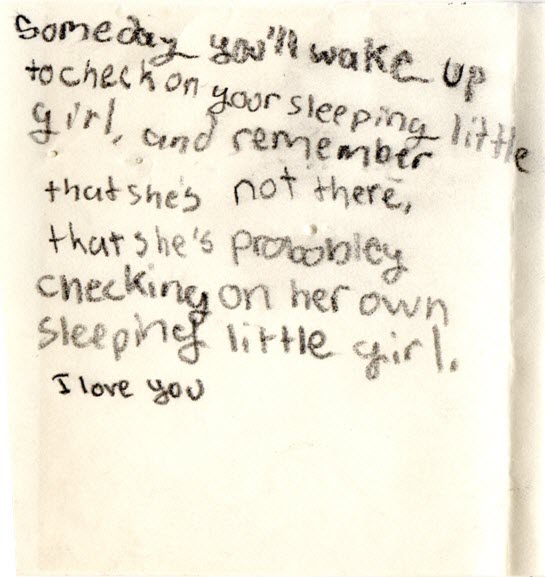 Someday you'll wake up
to check on your sleeping little
girl, and remember
that she's not there,
that she's probobley
checking on her own
sleeping little girl.
I love you